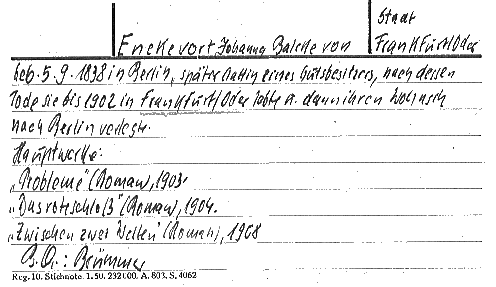 Stadt
Enckevort Johanna Balcke von Frankfurt/Oder
Geb. 5.9.1838 in Berlin, später Gattin eines Gutsbesitzers, nach dessen
Tode sie bis 1902 in Frankfurt/Oder lebte u. dann ihren Wohnsitz
nach Berlin verlegte.
Hauptwerke:
„Probleme" (Roman), 1903.
„Das rote Schloß" (Roman), 1904.
„Zwischen zwei Welten" (Roman), 1908
B.Q.: Brümmer
Reg. 10. Stichnote. 1.50. 232100. A. 803. S. 4062